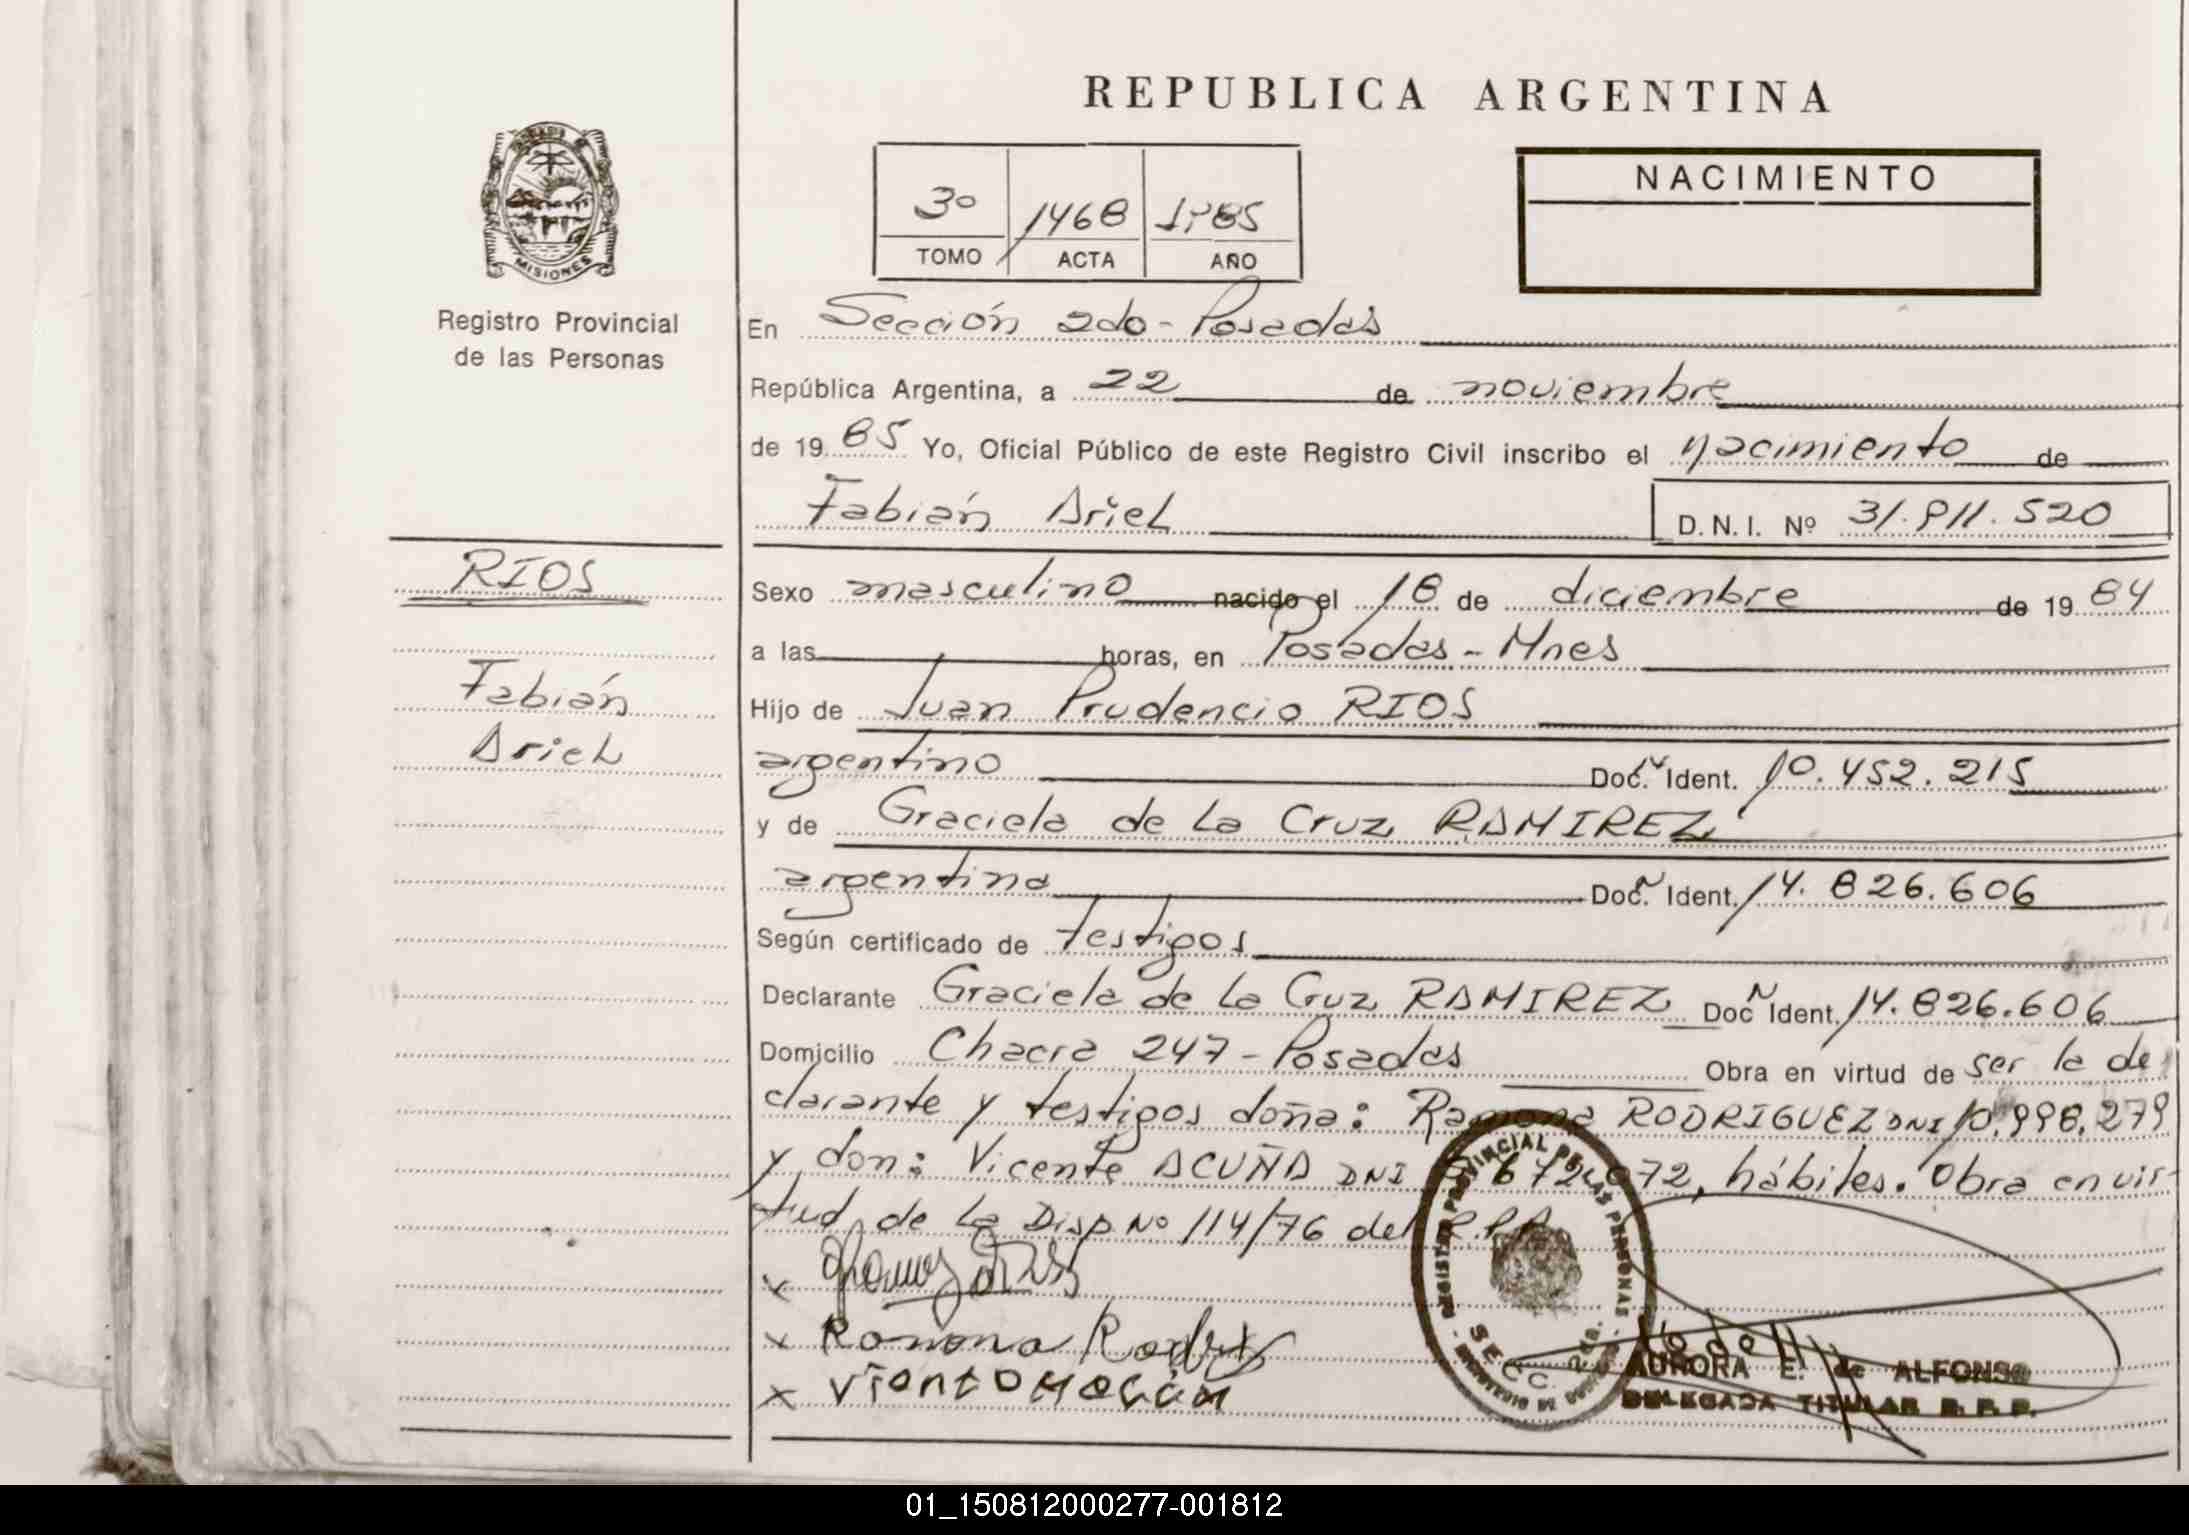 REPUBLICA ARGENTINA
NACIMIENTO
3º 1468 1985
TOMO ACTA AÑO
MISIONES
Registro Provincial
de las Personas
En Sección 2do - Posadas
República Argentina, a 22 de noviembre
de 19 85 Yo, Oficial Público de este Registro Civil inscribo el nacimiento de
Fabián Ariel D.N.I. Nº 31.911.520
RIOS
Fabián
Ariel
Sexo masculino nacido el 18 de diciembre de 19 84
a las horas, en Posadas - Mnes
Hijo de Juan Prudencio RIOS
argentino Doc. Ident. 10.452.215
y de Graciela de la Cruz RAMIREZ
argentina Doc. Ident. 14.826.606
Según certificado de testigos
Declarante Graciela de la Cruz RAMIREZ Doc Ident. 14.826.606
Domicilio Chacra 247 - Posadas Obra en virtud de ser la de
clarante y testigos doña: Ramona RODRIGUEZ DNI 10.998.279
y don: Vicente ACUÑA DNI 672.072, hábiles. Obra en vir-
tud de la Disp. Nº 114/76 del R.P.P.
x
x Ramona
x
REGISTRO PROVINCIAL DE LAS PERSONAS
SECC. 2da.
AURORA E. de ALFONSO
DELEGADA TITULAR R. P. P.
01_150812000277-001812